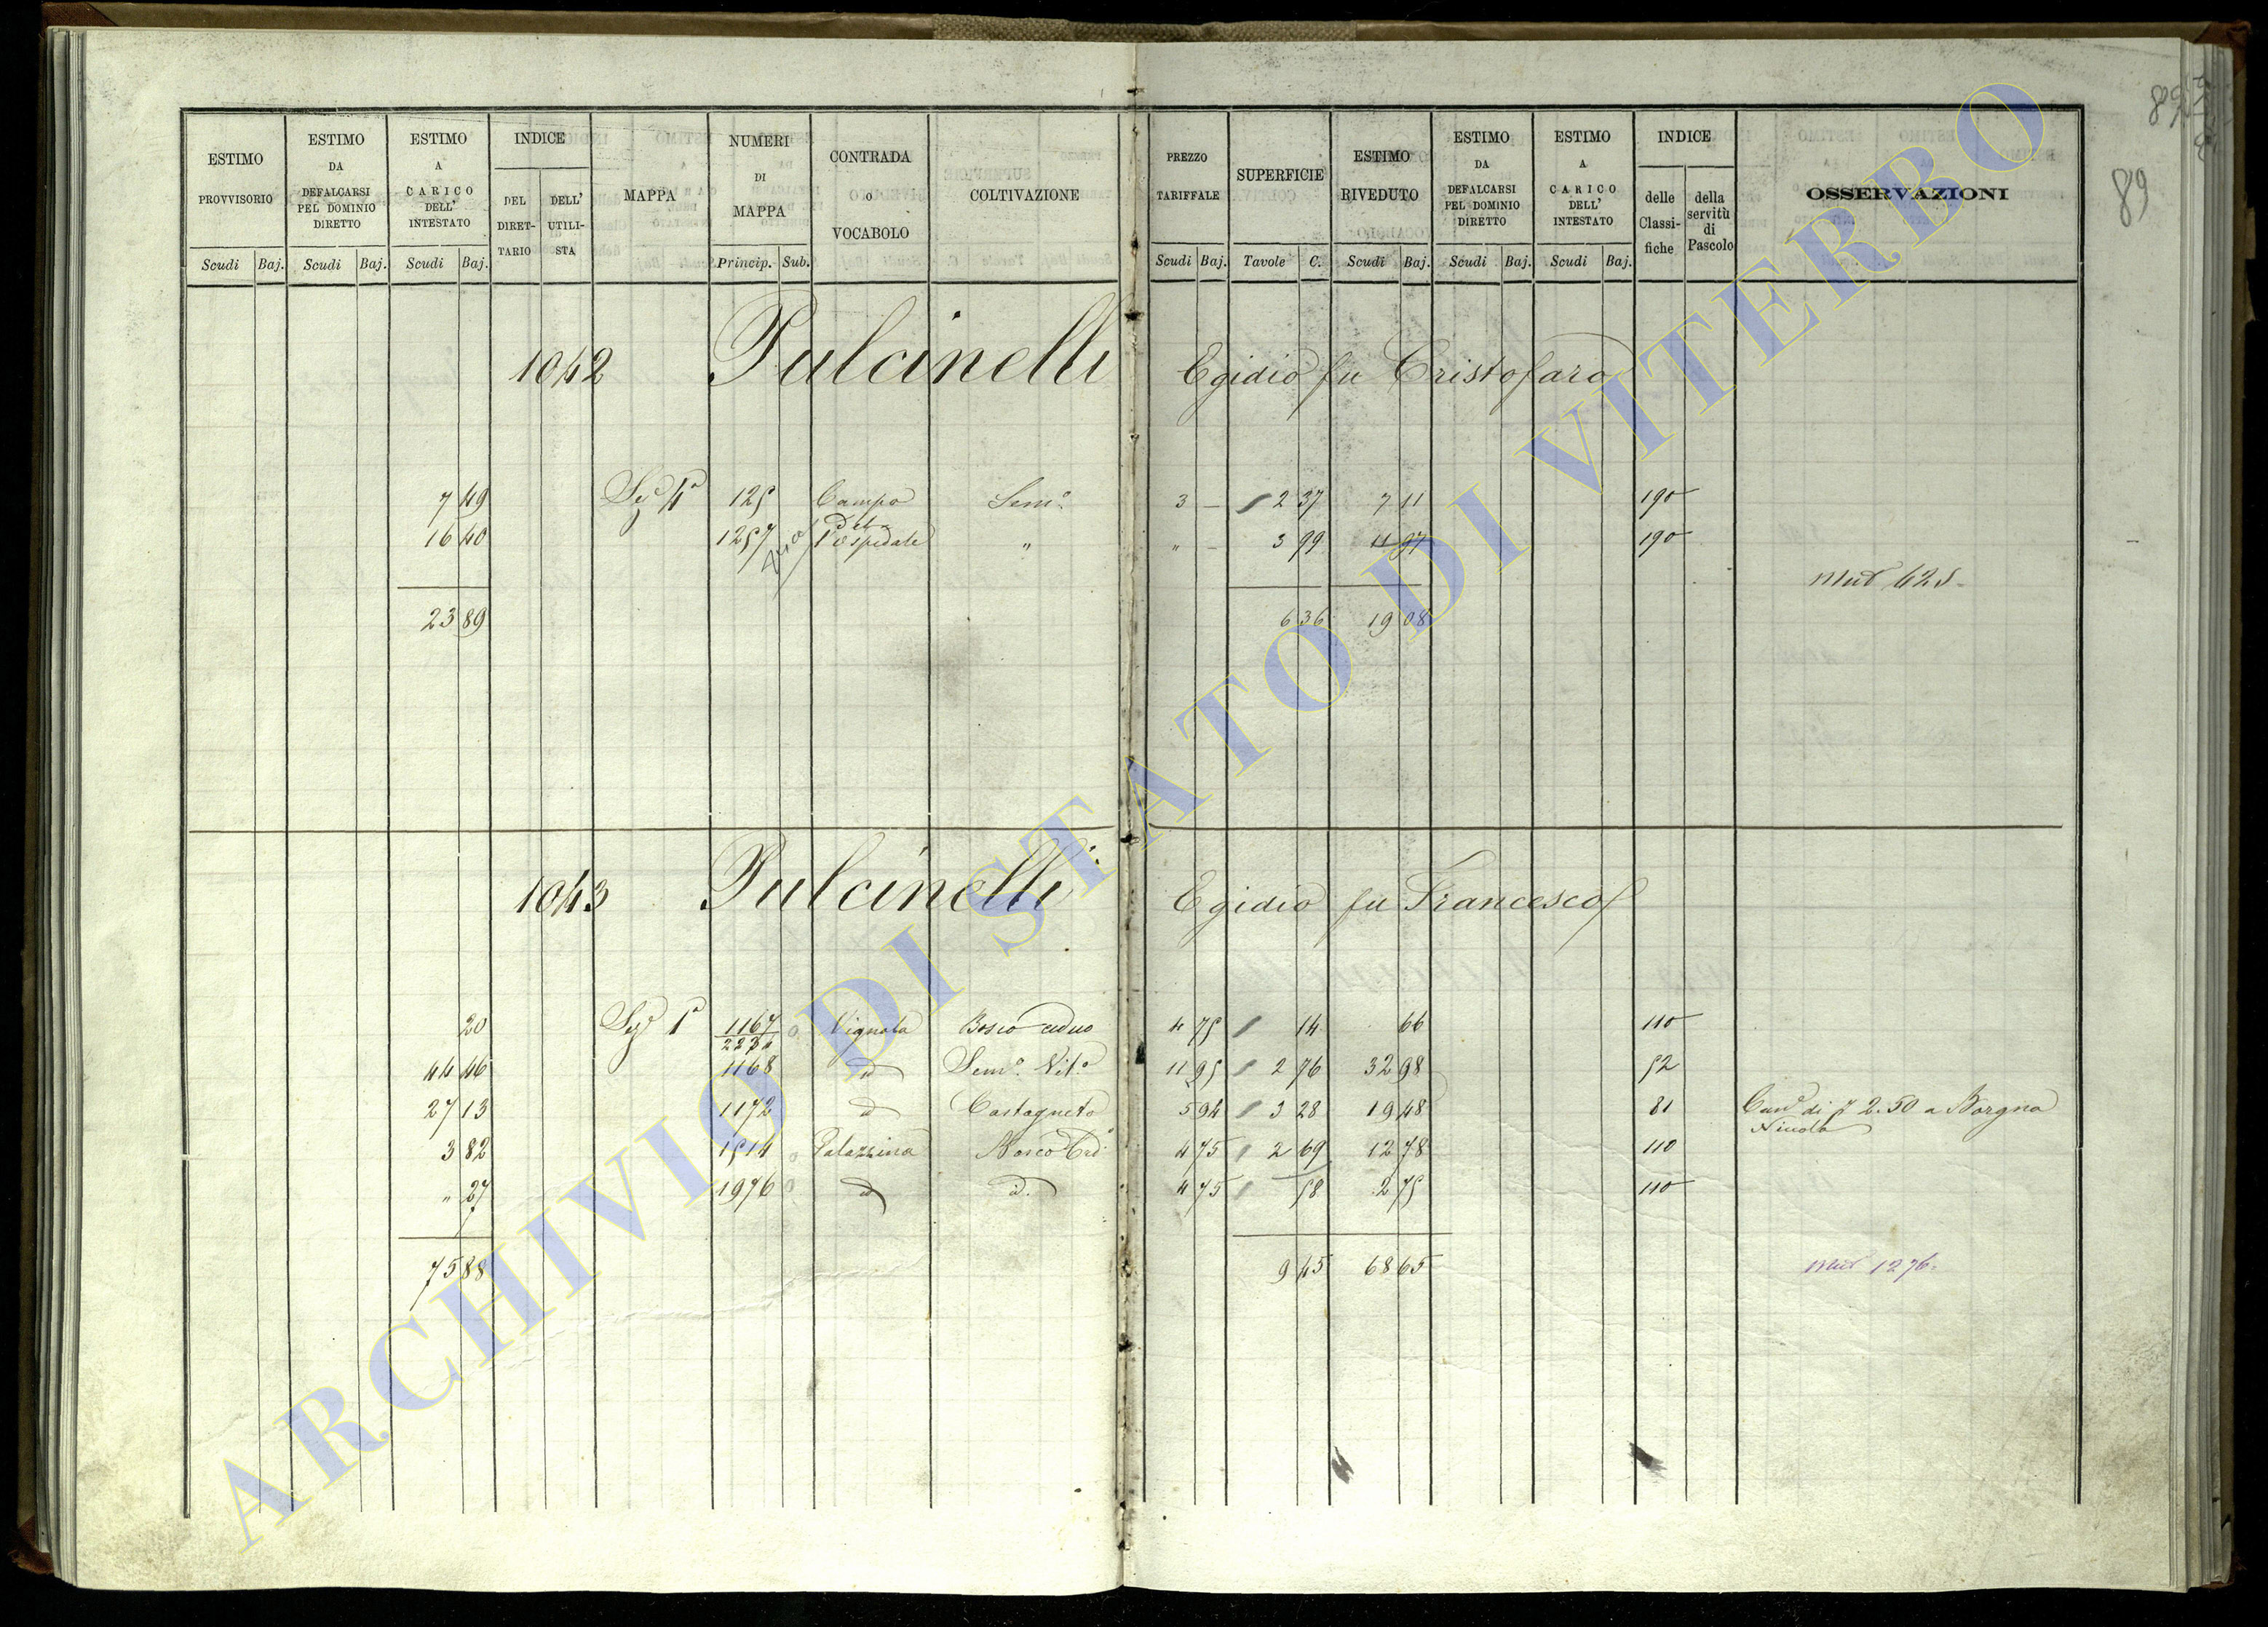 89
ESTIMO PROVVISORIO
ESTIMO DA DEFALCARSI PEL DOMINIO DIRETTO
ESTIMO A CARICO DELL' INTESTATO
INDICE
DEL DIRET-TARIO
DELL' UTILI-STA
MAPPA
NUMERI DI MAPPA
CONTRADA O VOCABOLO
COLTIVAZIONE
PREZZO TARIFFALE
SUPERFICIE
ESTIMO RIVEDUTO
ESTIMO DA DEFALCARSI PEL DOMINIO DIRETTO
ESTIMO A CARICO DELL' INTESTATO
INDICE
delle Classi-fiche
della servitù di Pascolo
OSSERVAZIONI
Scudi Baj. Scudi Baj. Scudi Baj. Princip. Sub. Scudi Baj. Tavole C. Scudi Baj. Scudi Baj. Scudi Baj.
1042 Pulcinelli Egidio fu Cristofaro
7 49 Sez.e 4a 125 Campo Sem.o 3 – 2 37 7 11 190
16 40 1257 dell'Ospedale " " – 3 99 11 97 190
Mut 625
23 89 6 36 19 08
1043 Pulcinelli Egidio fu Francesco
20 Sez.e 1a 1167/2234 Vignola Bosco ceduo 4 75 14 66 110
44 46 1168 id Sem.o Vit.o 11 95 2 76 32 98 52
27 13 1172 id Castagneto 5 94 3 28 19 48 81 di 2.50 a Borgna
Nicola
3 82 1514 Palazzina Bosco Ced.o 4 75 2 69 12 78 110
" 27 1976 id id. 4 75 58 2 75 110
75 88 9 45 68 65 Mut 1276.
ARCHIVIO DI STATO DI VITERBO